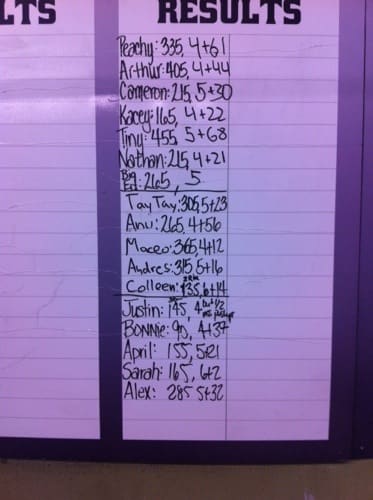 LTS
RESULTS
Peachy: 335, 4+61
Arthur: 405, 4+44
Cameron: 215, 5+30
Kacey: 165, 4+22
Tiny: 455, 5+68
Nathan: 215, 4+21
Big
Ed: 265, 5
Tay Tay: 305, 5+23
Anu: 265, 4+56
Maceo: 365, 4+12
Andres: 315, 5+16
Colleen: 135, 6+14
Justin: 145, 4
Bonnie: 90, 4+37
April: 155, 5+21
Sarah: 165, 6+2
Alex: 285 5+32